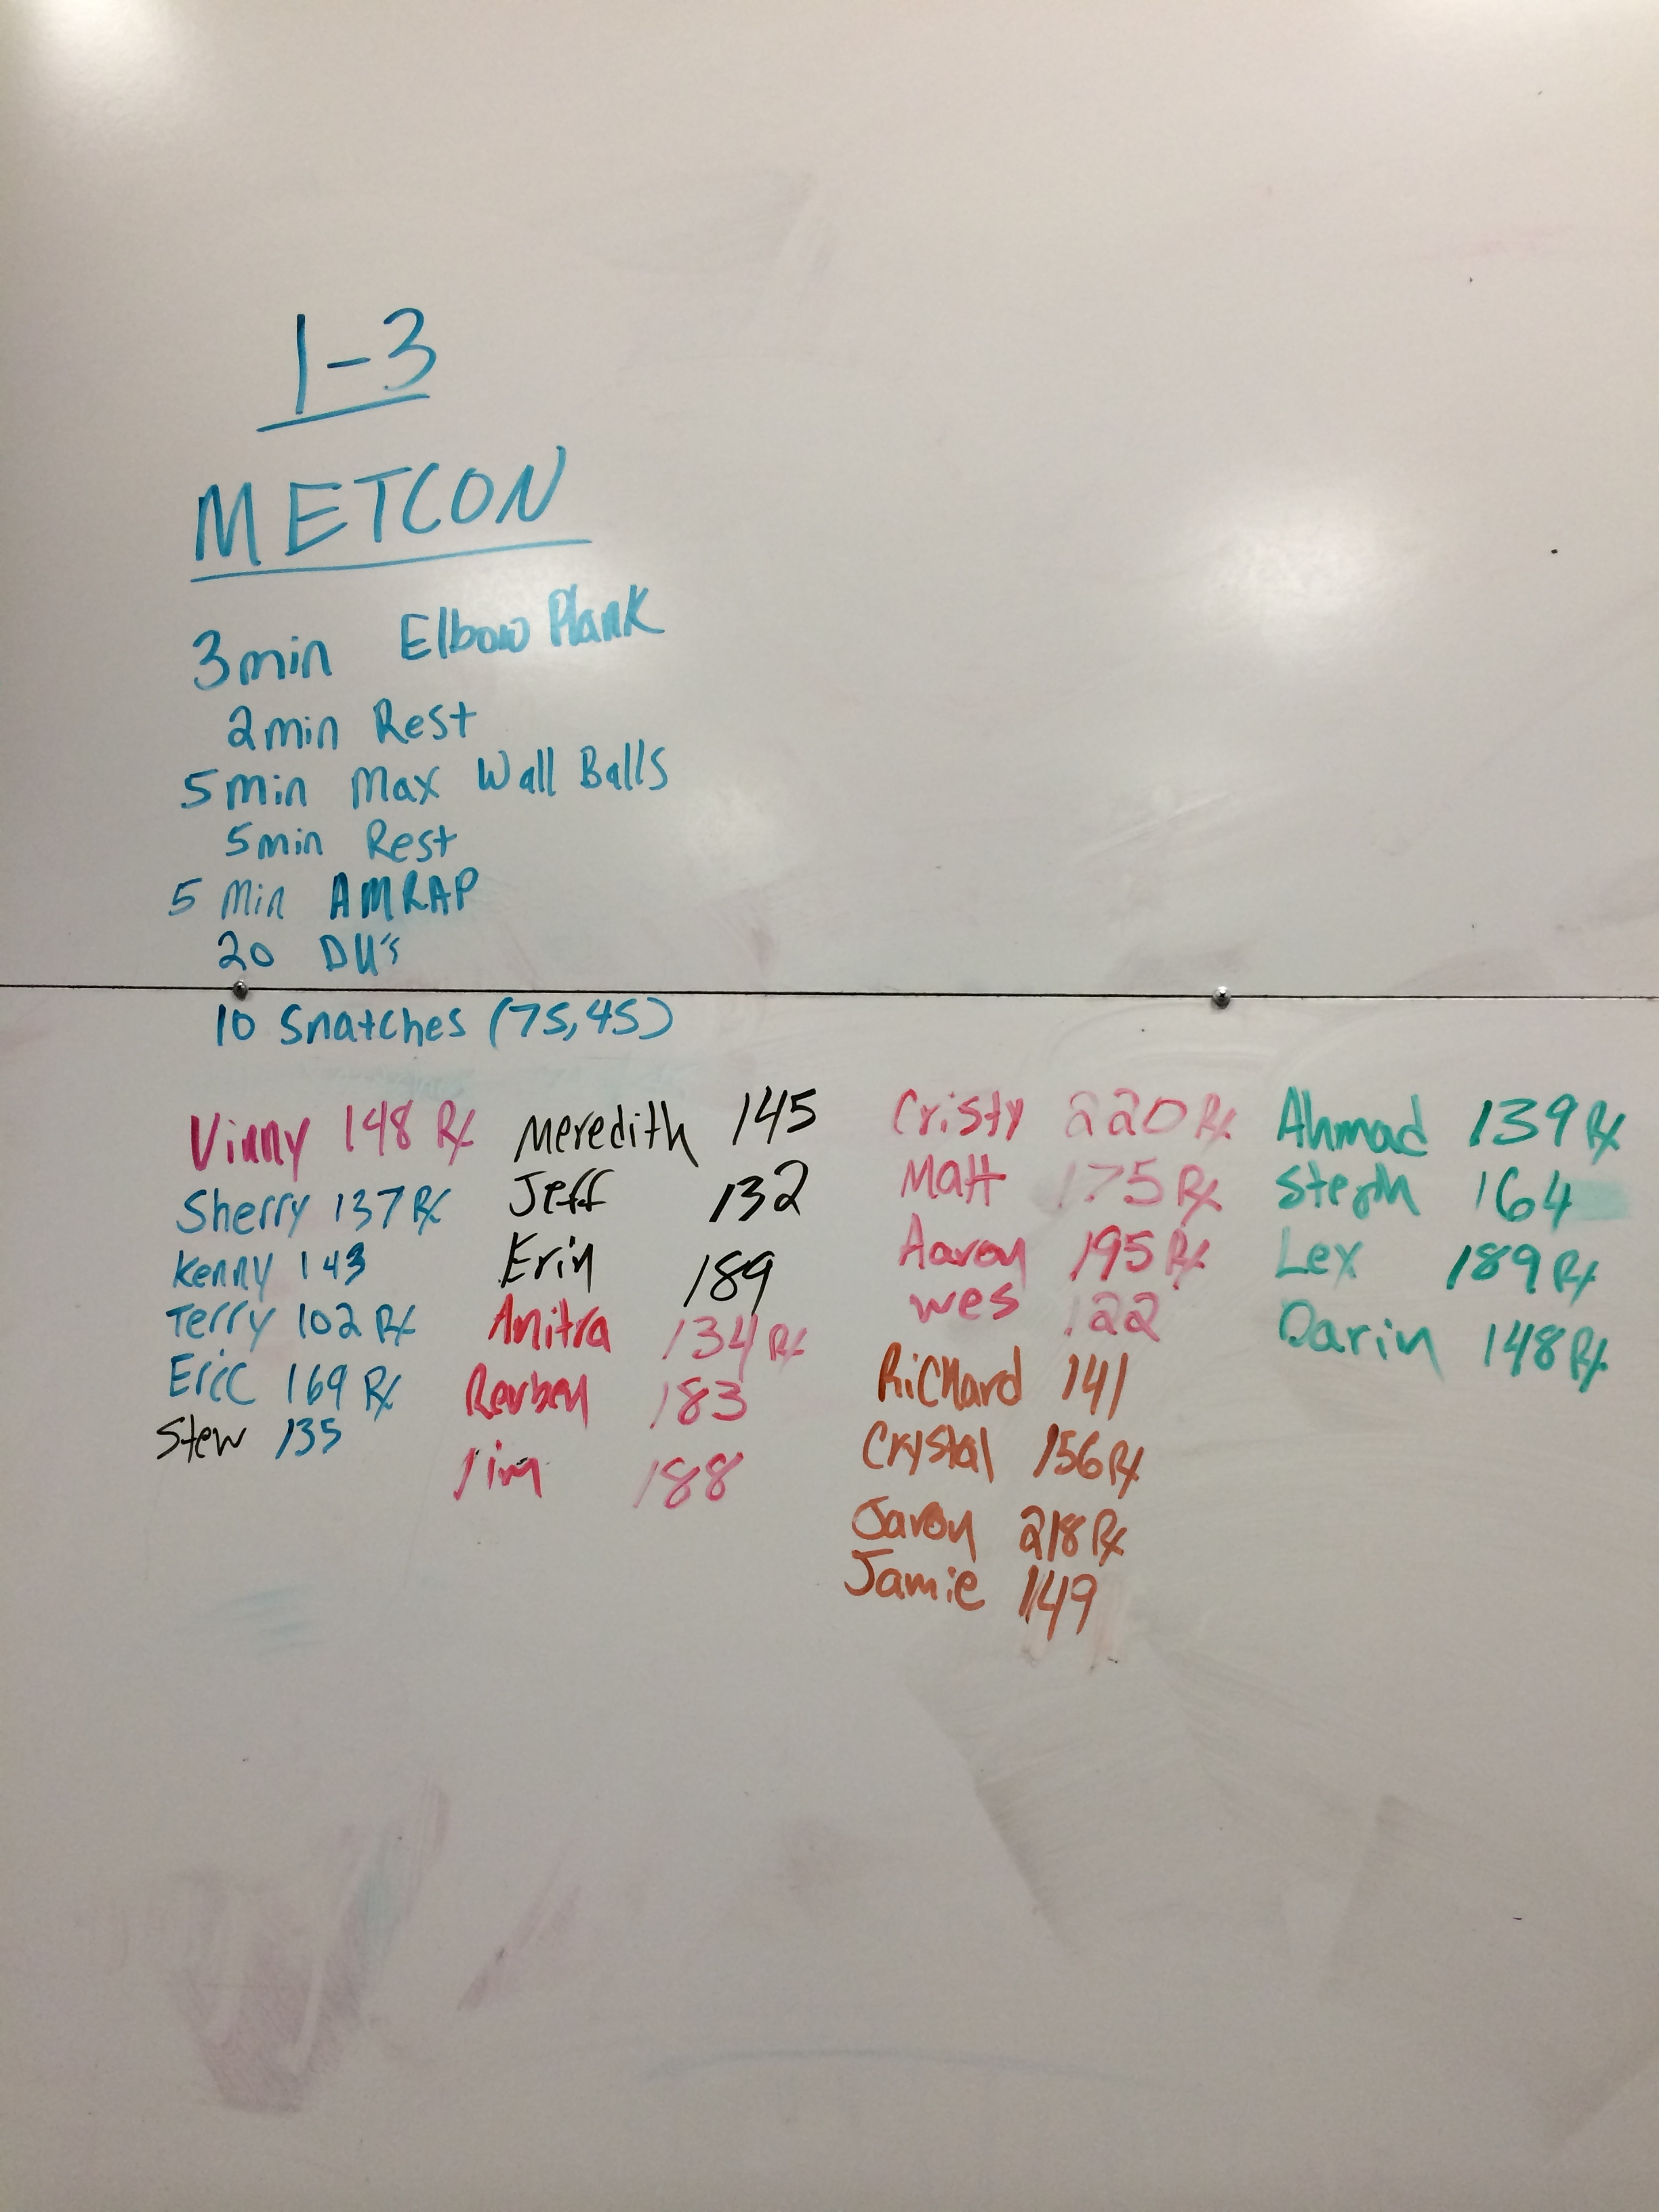 1-3
METCON
3min Elbow Plank
2min Rest
5min Max Wall Balls
5min Rest
5 Min AMRAP
20 DU's
10 Snatches (75,45)
Vinny 148 Rx
Sherry 137 Rx
Kenny 143
Terry 102 Rx
Eric 169 Rx
Stew 135
Meredith 145
Jeff 132
Erin 189
Anitra 134 Rx
Reuben 183
Jim 188
Cristy 220 Rx
Matt 175 Rx
Aaron 195 Rx
Wes 122
Richard 141
Crystal 156 Rx
Jaron 218 Rx
Jamie 149
Ahmad 139 Rx
Steph 164
Lex 189 Rx
Darin 148 Rx